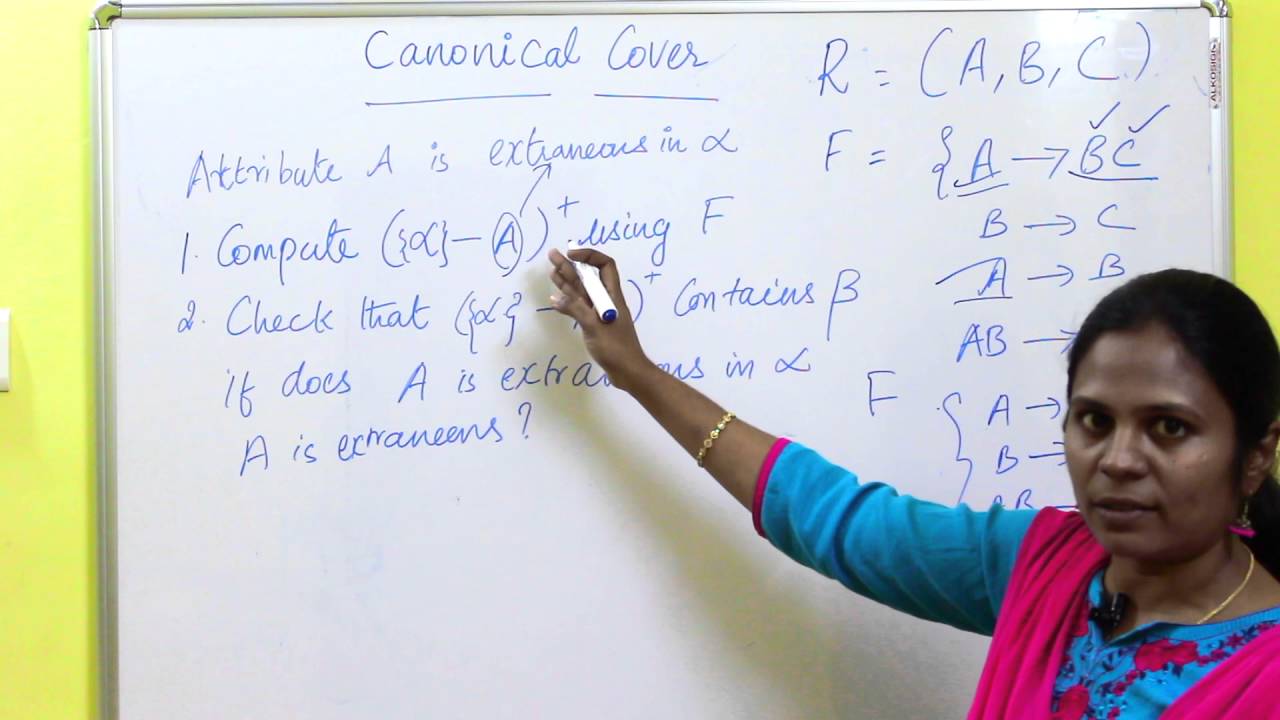 Canonical Cover
Attribute A is extraneous in α
1. Compute ({α} – A)⁺ using F
2. Check that ({α} – )⁺ contains β
if does A is in α
A is extraneens?
R = (A, B, C)
F = {A → BC
B → C
A → B
AB →
F { A →
B →
AB
ALKOSIGN